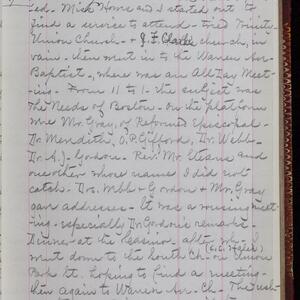 ed. Miss Howe and I started out to
find a service to attend - tried Trinity
Union Church - & J. F. Clarke church, in
vain - then went in to the Warren Ave.
Baptist, where was an All Day Meet-
ing - From 11 to 1 - the subject was
The Needs of Boston - on the platform
were Mr. Gray, of Reformed Episcopal -
Dr. Meredith, O.P. Gifford, Dr. Webb -
Dr. A. J. Gordon. Rev. Mr. and
one other whose name I did not
catch. Drs. Webb & Gordon & Mr. Gray
gave addresses - It was a rousing meet-
ing - especially Dr. Gordon's remarks.
Dinner - at the - after which I
went down to the South Ch - on Union
(E. E. Hale's)
Park St. hoping to find a meeting -
then again to Warren Av. Ch - The